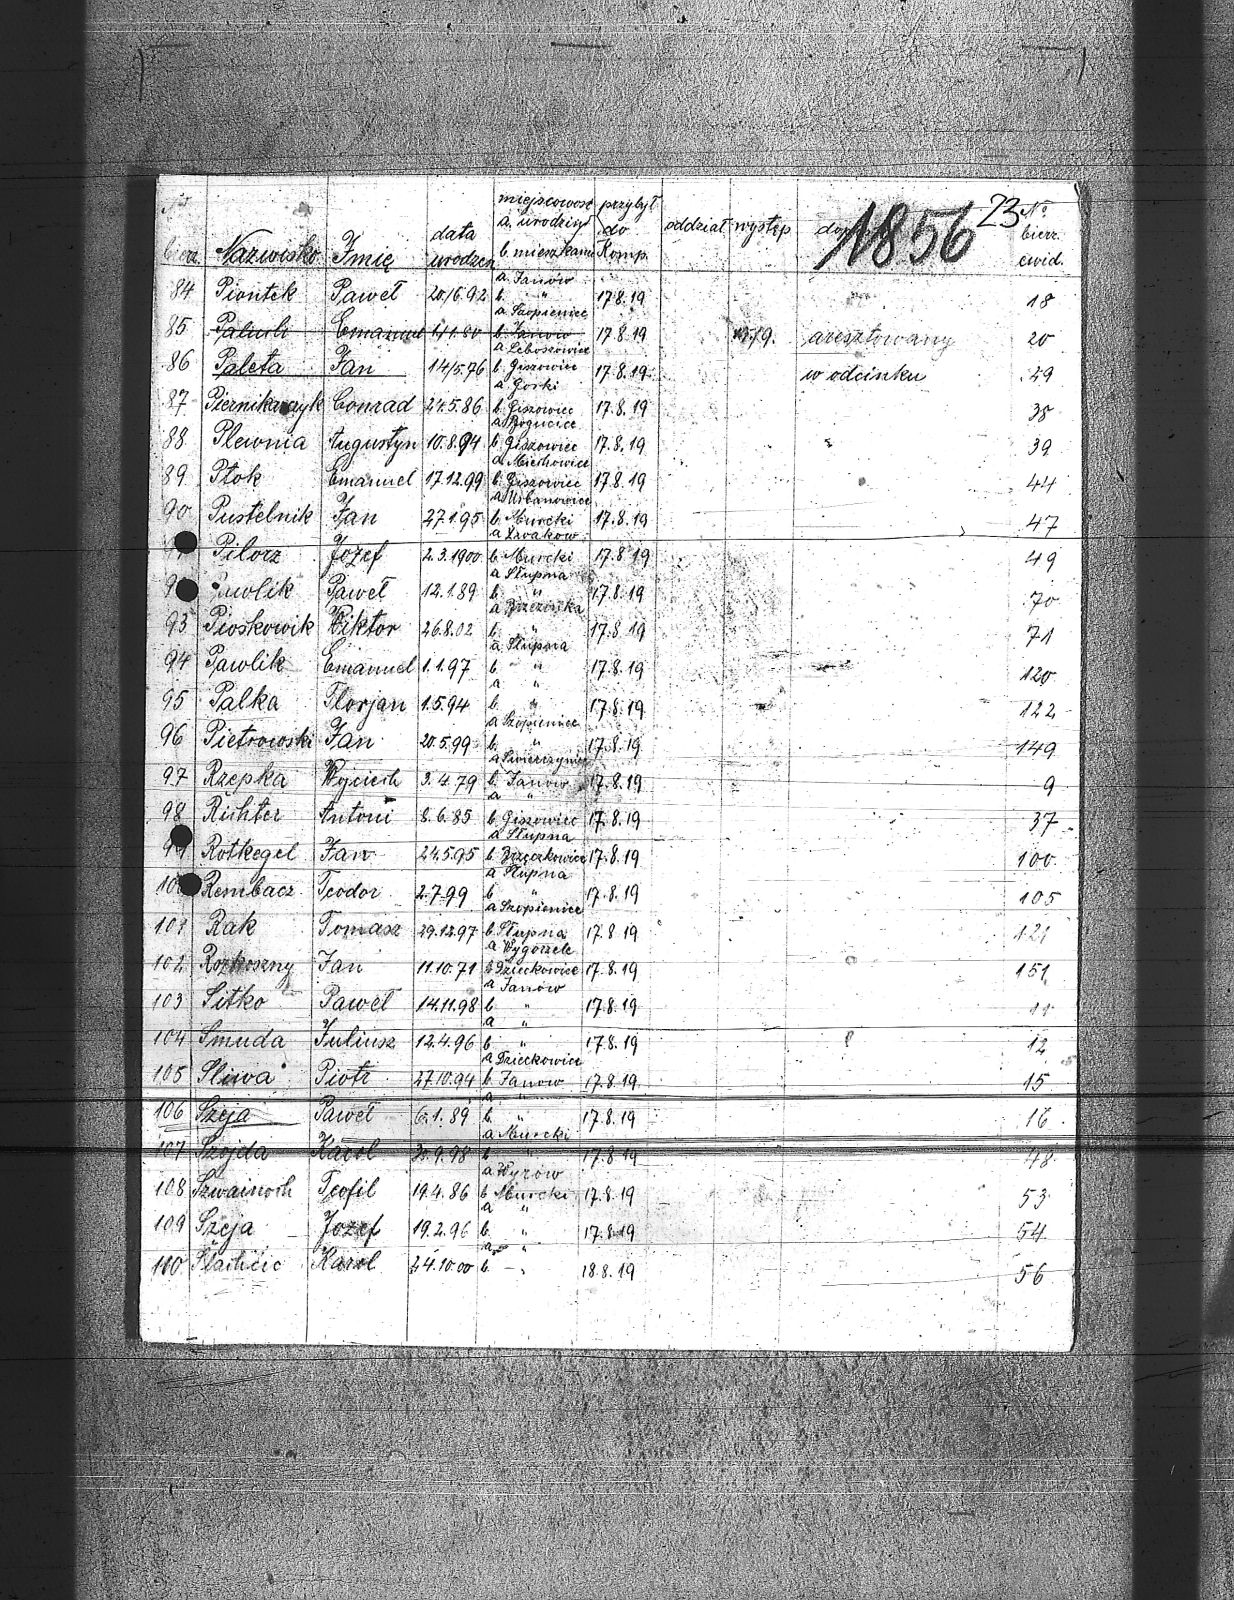 No bierz. Nazwisko Imię data urodzen miejscowość a. urodzin b. mieszkania przybył do Komp. oddział występ 1856 23 No bierz. ewid.
a Janów
84 Piontek Paweł 20/6.92 b. " 17.8.19 18
a Szopienice
85 Paluch Emanuel 1/1.80 b. Janów 17.8.19 aresztowany 20
a Leboszowice
86 Paleta Jan 14/5.76 b. Giszowiec 17.8.19 w odcinku 29
a Gorki
87 Piernikarczyk Conrad 24.5.86 b. Giszowiec 17.8.19 35
a Bogucice
88 Plewnia Augustyn 10.8.94 b Giszowiec 17.8.19 39
a Miechowice
89 Ptok Emanuel 17.12.99 b. Giszowiec 17.8.19 44
a Urbanowice
90 Pustelnik Jan 27.1.95 b. Murcki 17.8.19 47
a
Pilorz Jozef 2.3.1900 b Murcki 17.8.19 49
a Słupna
Pawlik Paweł 12.1.89 b. " 17.8.19 70
a Brzezinka
93 Pioskowik Wiktor 26.8.02 b. " 17.8.19 71
a Słupna
94 Pawlik Emanuel 1.1.97 b " 17.8.19 120
a "
95 Palka Florjan 1.5.94 b. " 17.8.19 122
a Szopienice
96 Pietrowski Jan 20.5.99 b. " 17.8.19 149
a
97 Rzepka Wojciech 3.4.79 b. Janów 17.8.19 9
a "
98 Richter Antoni 8.6.85 b Giszowiec 17.8.19 37
a Słupna
99 Rotkegel Jan 24.5.95 b. Brzęczkowice 17.8.19 100
a Słupna
100 Rembacz Teodor 2.7.99 b " 17.8.19 105
a Szopienice
101 Rak Tomasz 29.12.97 b Słupna 17.8.19 121
a Wygorzele
102 Rozkoszny Jan 11.10.71 b Dzieckowice 17.8.19 151
a Janów
103 Sitko Paweł 14.11.98 b " 17.8.19 11
a "
104 Smuda Juliusz 12.4.96 b. " 17.8.19 12
a Dzieckowice
105 Sliwa Piotr 27.10.94 b. Janów 17.8.19 15
a "
106 Szeja Paweł 6.1.89 b. " 17.8.19 16
a Murcki
107 Szojda Karol 20.9.98 b " 17.8.19 48
a Wyrów
108 Szwainoch Teofil 19.4.86 b Murcki 17.8.19 53
a "
109 Szeja Jozef 19.2.96 b. " 17.8.19 54
a "
110 Karol 24.10.00 b. 18.8.19 56